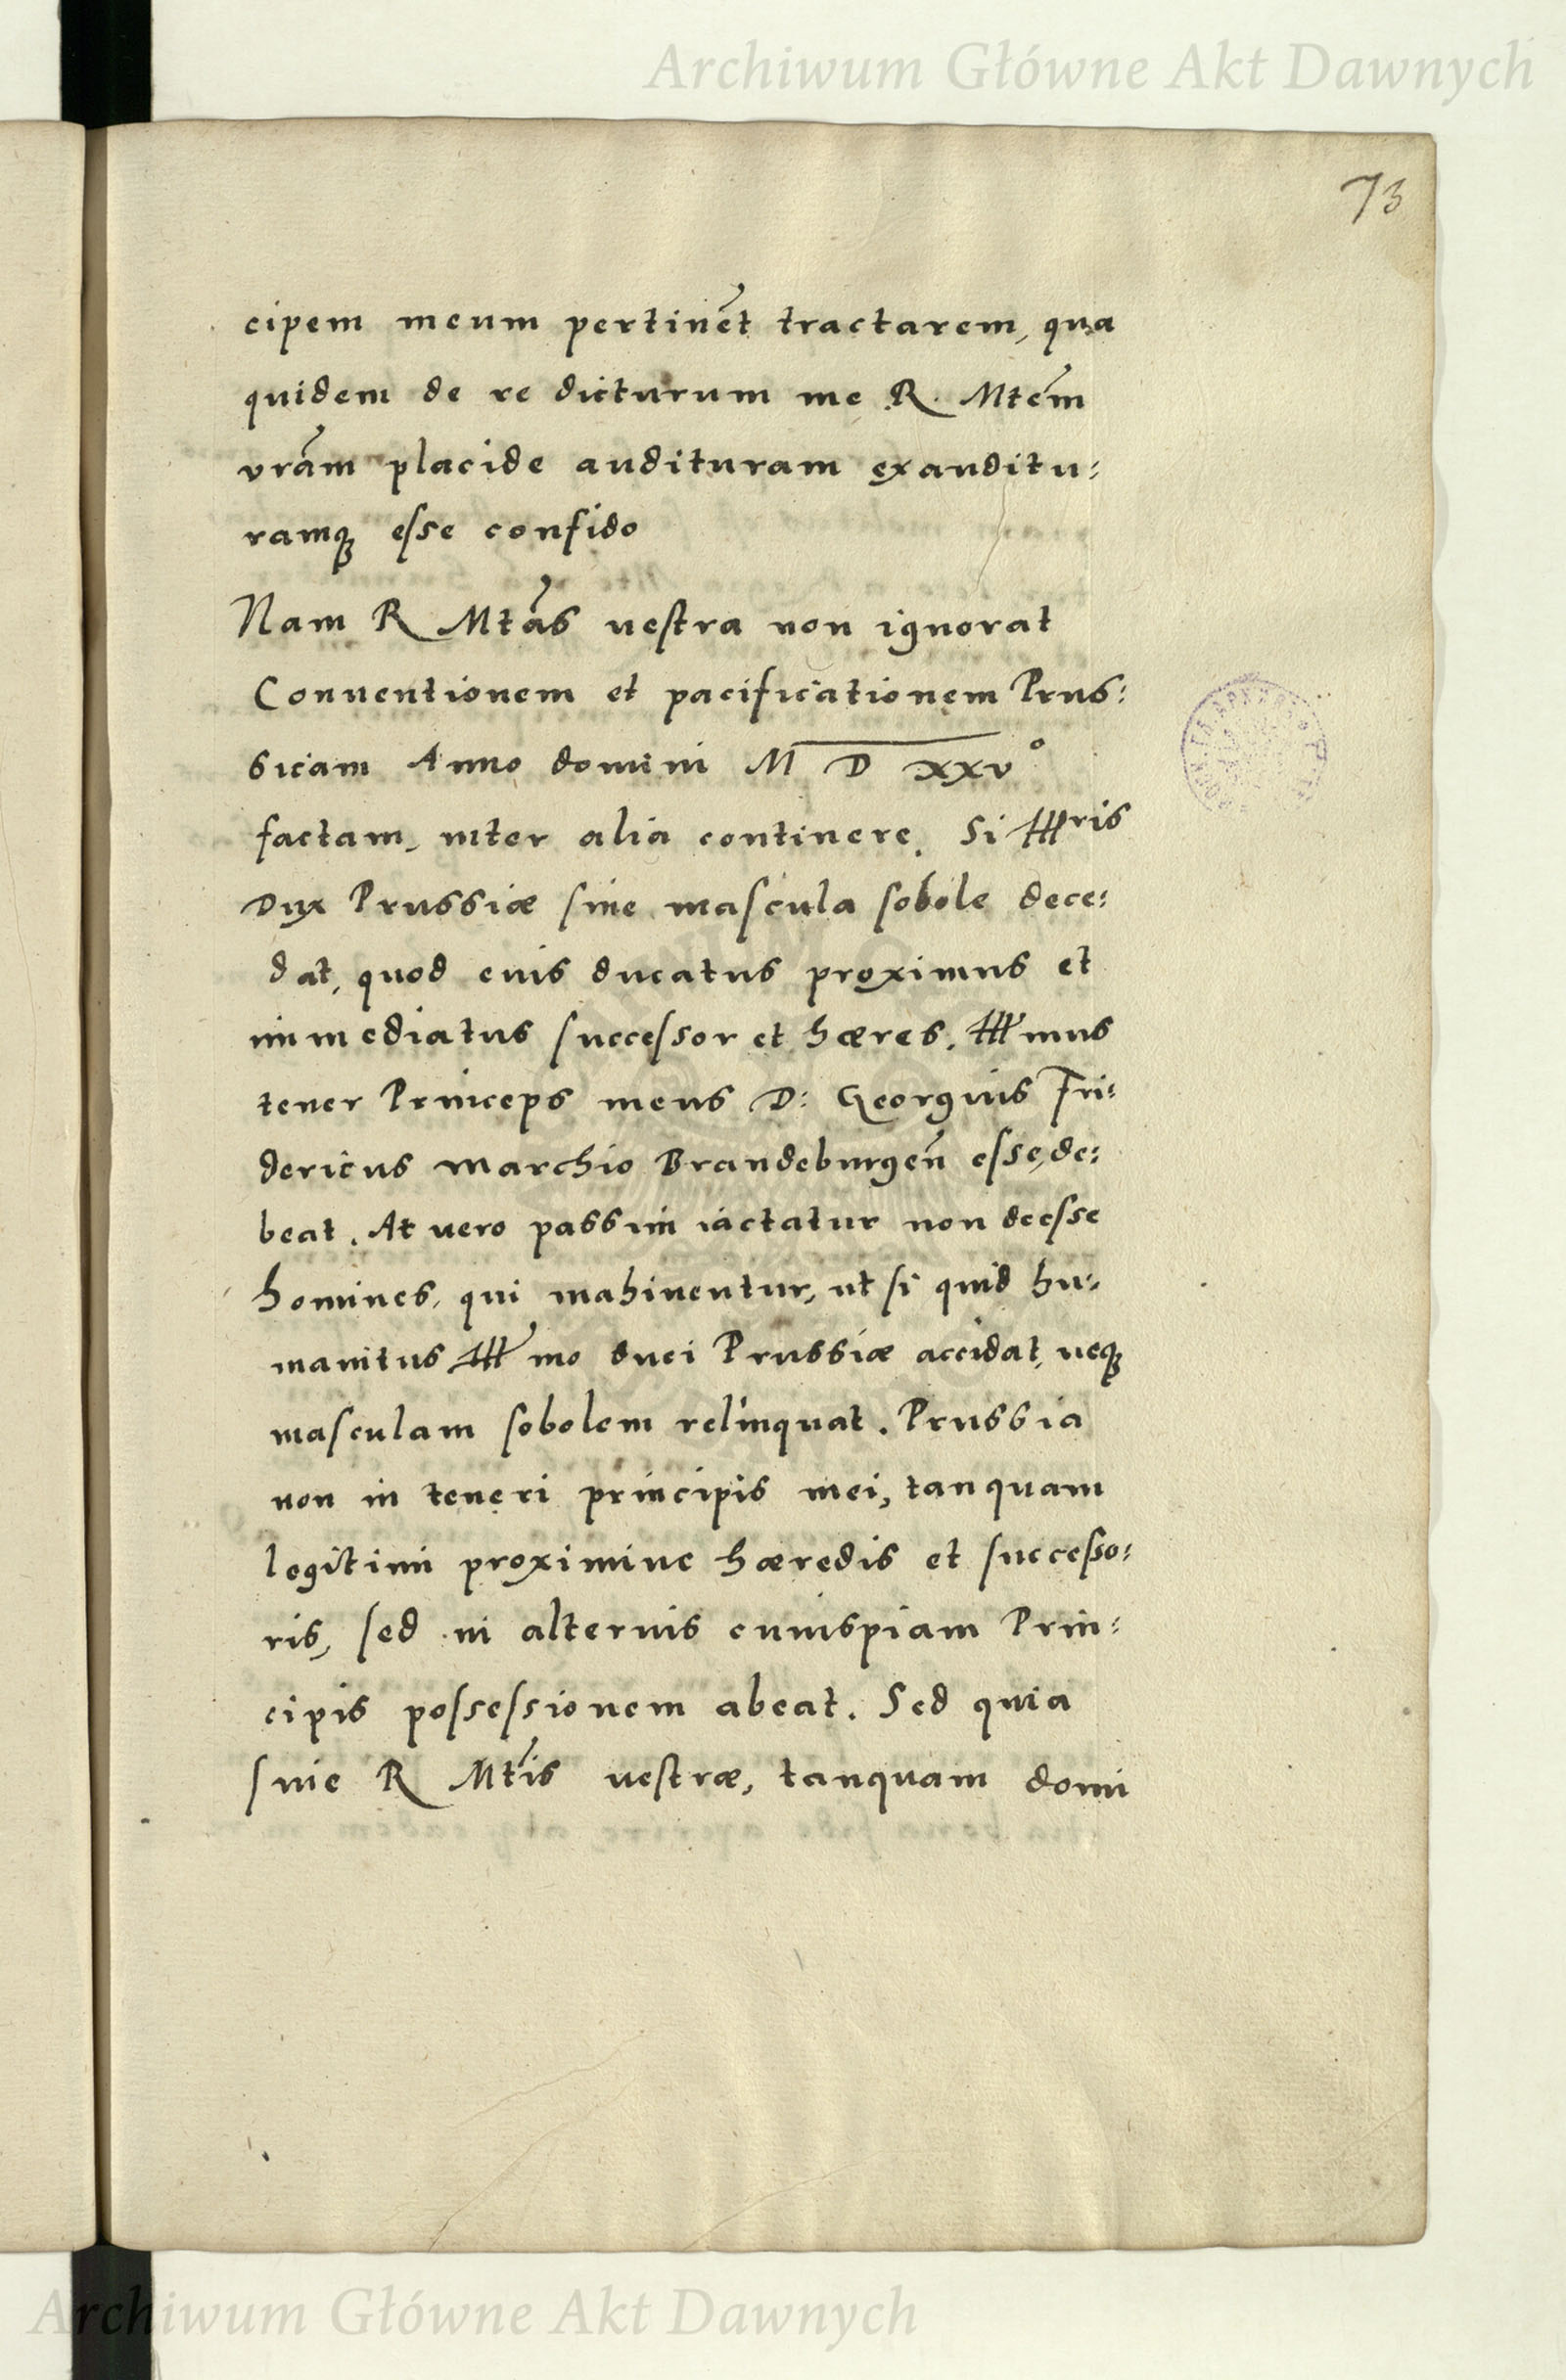 Archiwum Główne Akt Dawnych
73
cipem meum pertinēt tractarem, qua
quidem de re dicturum me R. Mtēm
vrām placide audituram exauditu:
ramq esse confido
Nam R Mtās uestra non ignorat
Conuentionem et pacificationem Prus:
sicam Anno domini M D XXV°
factam, inter alia continere. Si Illris
Dux Prussiæ sine mascula sobole dece:
dat, quod euis ducatus proximus et
immediatus successor et hæres. Illmus
tener Princeps meus D: Georgius Fri:
dericus Marchio Brandeburgeñ esse, de:
beat. At uero passim iactatur non deesse
homines, qui mahinentur, ut si quid hu:
manitus Illmo duci Prussiæ accidat, neq
masculam sobolem relinquat. Prussia
non in teneri principis mei, tanquam
legitimi proximiue hæredis et successo:
ris, sed in alterius cuiuspiam Prin:
cipis possessionem abeat. Sed quia
sine R Mtis uestræ, tanquam domi
Archiwum Główne Akt Dawnych